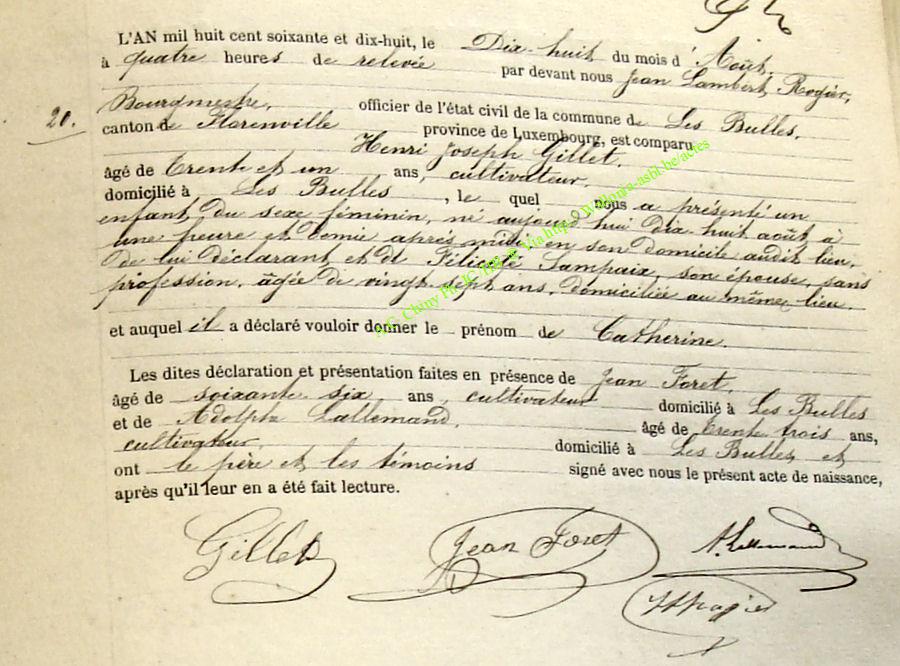 L'AN mil huit cent soixante et dix-huit, le Dix-huit du mois d'Août,
à quatre heures de relevée par devant nous Jean Lambert Rogier,
20.
Bourgmestre, officier de l'état civil de la commune de Les Bulles,
canton de Florenville province de Luxembourg, est comparu
Henri Joseph Gillet,
âgé de trente et un ans, cultivateur,
domicilié à Les Bulles, le quel nous a présenté un
enfant du sexe féminin, né aujourd'hui Dix-huit août à
une heure et demie après midi en son domicile audit lieu,
de lui déclarant et de Félicité Lampaix, son épouse, sans
profession, âgée de vingt-sept ans, domiciliée au même lieu.
et auquel il a déclaré vouloir donner le prénom de Catherine.
Les dites déclaration et présentation faites en présence de Jean Foret,
âgé de soixante six ans, cultivateur domicilié à Les Bulles
et de Adolphe Lallemand, âgé de trente trois ans,
cultivateur domicilié à Les Bulles, et
ont le père et les témoins signé avec nous le présent acte de naissance,
après qu'il leur en a été fait lecture.
Gillet Jean Foret A. Lallemand